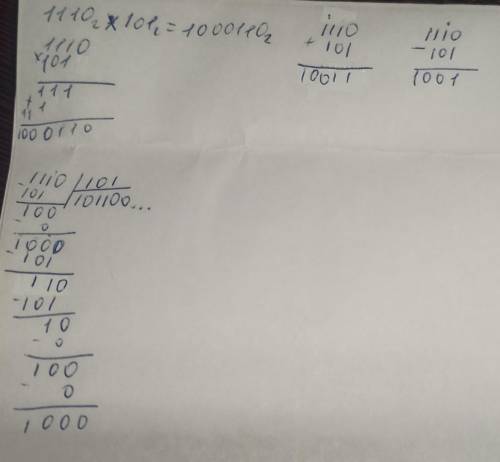 1110₂ × 101₂ = 1000110₂
1110
×101
111
+
111
1000110
1110
+ 101
10011
1110
- 101
1001
-1110 | 101
101 | 101100...
100
- 0
1000
- 101
110
-101
10
- 0
100
- 0
1000